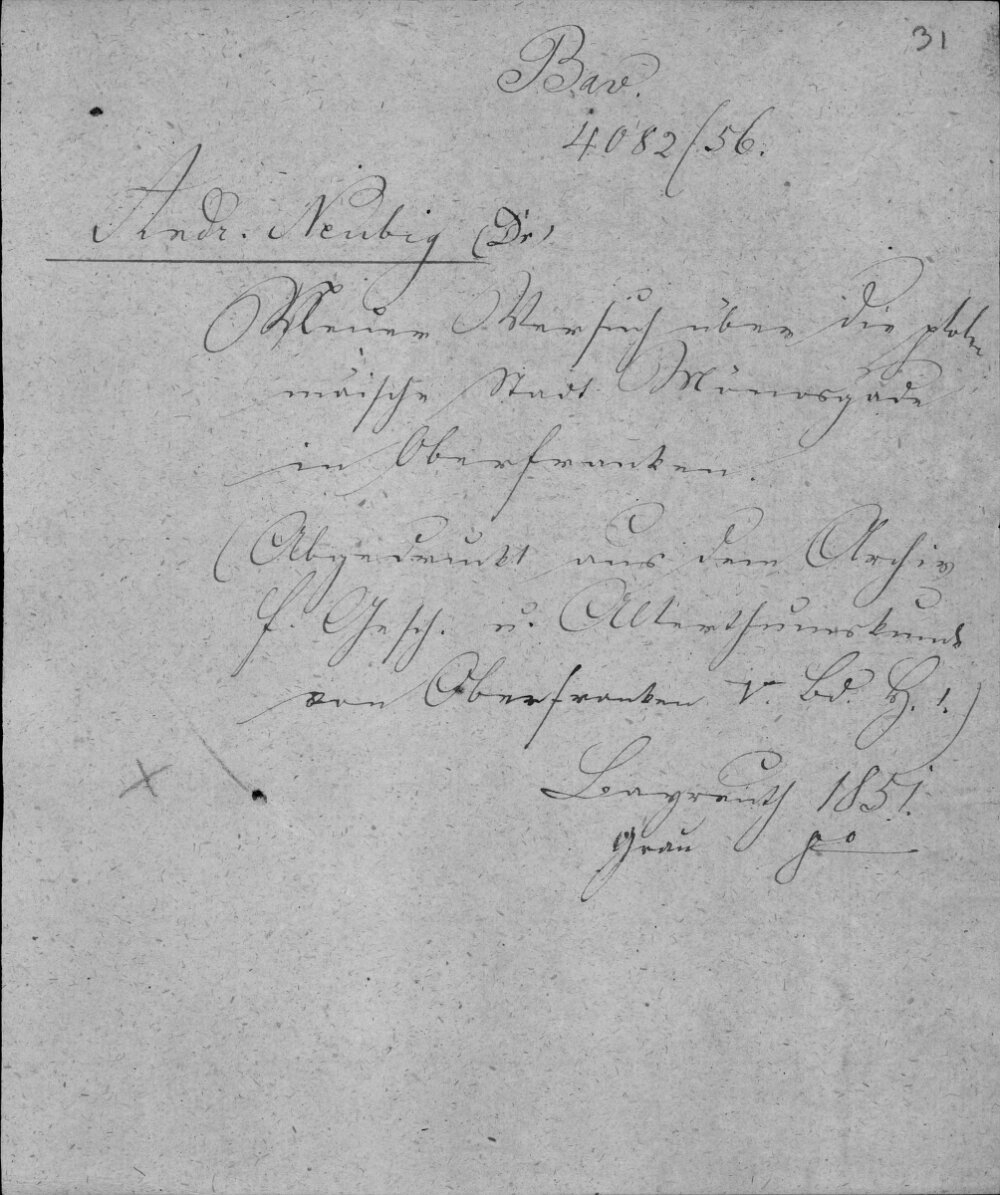 31
Bav.
4082/56.
Andr. Neubig (Dr)
Neuer Versuch über die ptole
mäische Stadt Mönosgada
in Oberfranken.
(Abgedruckt aus dem Archiv
f. Gesch. u. Alterthumskunde
von Oberfranken V. Bd. H. 1.)
Bayreuth 1851.
Grau 8°
X